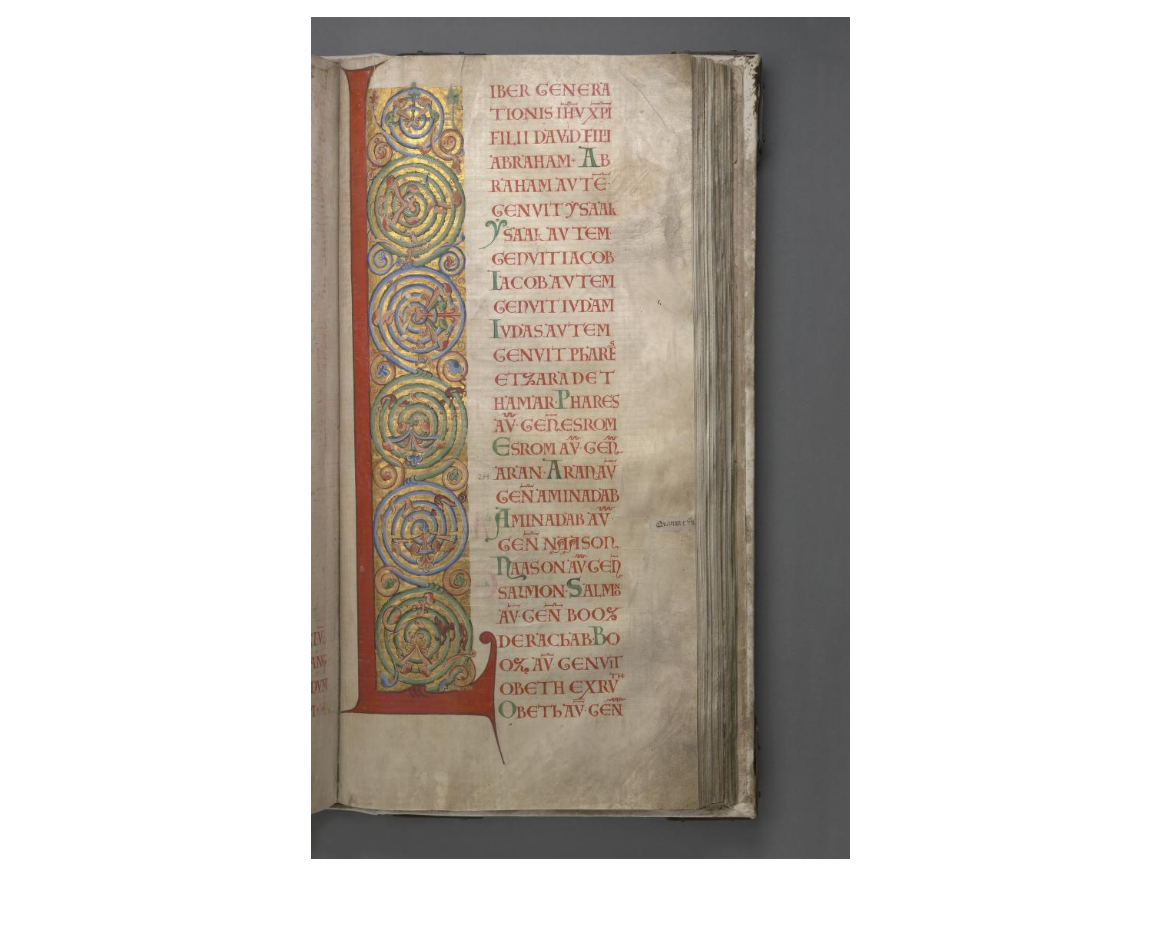 LIBER GENERA
TIONIS IHV XPI
FILII DAVID FILII
ABRAHAM· AB
RAHAM AVTĒ
GENVIT YSAAK
YSAAK AVTEM
GENVIT IACOB
IACOB AVTEM
GENVIT IVDAM
IVDAS AVTEM
GENVIT PHARES
ET ZARA DE T
HAMAR· PHARES
AV̄· GEN̄ ESROM
ESROM AV̄· GEN̄
ARAN· ARAN AV̄
GEN̄ AMINADAB
AMINADAB AV̄
GEN̄ NAASON
NAASON AV̄ GEN̄
SALMON· SALMŌ
AV̄· GEN̄ BOOZ
DE RACHAB· BO
OZ AV̄ GENVIT
OBETH EX RVTH
OBETH AV̄· GEN̄